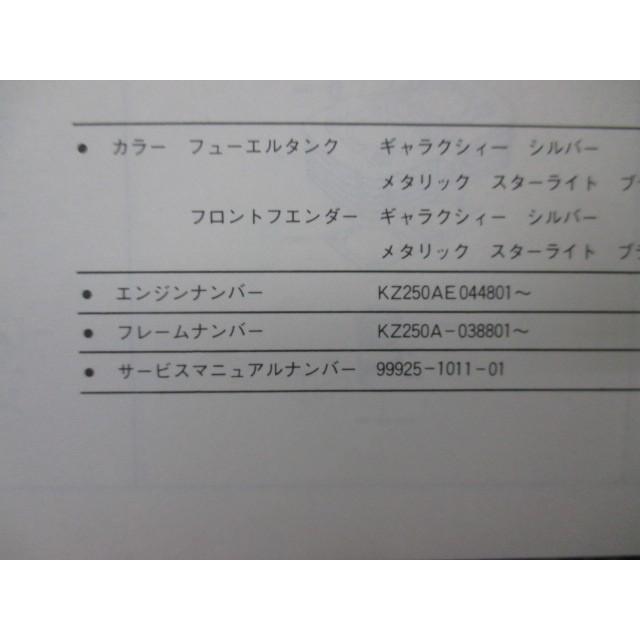 ● カラー フューエルタンク ギャラクシィー シルバー
メタリック スターライト
フロントフエンダー ギャラクシィー シルバー
メタリック スターライト
● エンジンナンバー KZ250AE044801～
● フレームナンバー KZ250A-038801～
● サービスマニュアルナンバー 99925-1011-01